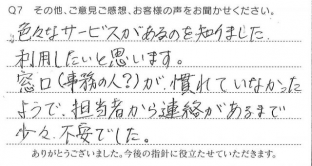 Q7 その他、ご意見ご感想、お客様の声をお聞かせください。
色々なサービスがあるのを知りました.
利用したいと思います。
窓口(事務の人?)が、慣れていなかった
ようで、担当者から連絡があるまで
少々、不安でした。
ありがとうございました。今後の指針に役立たせていただきます。